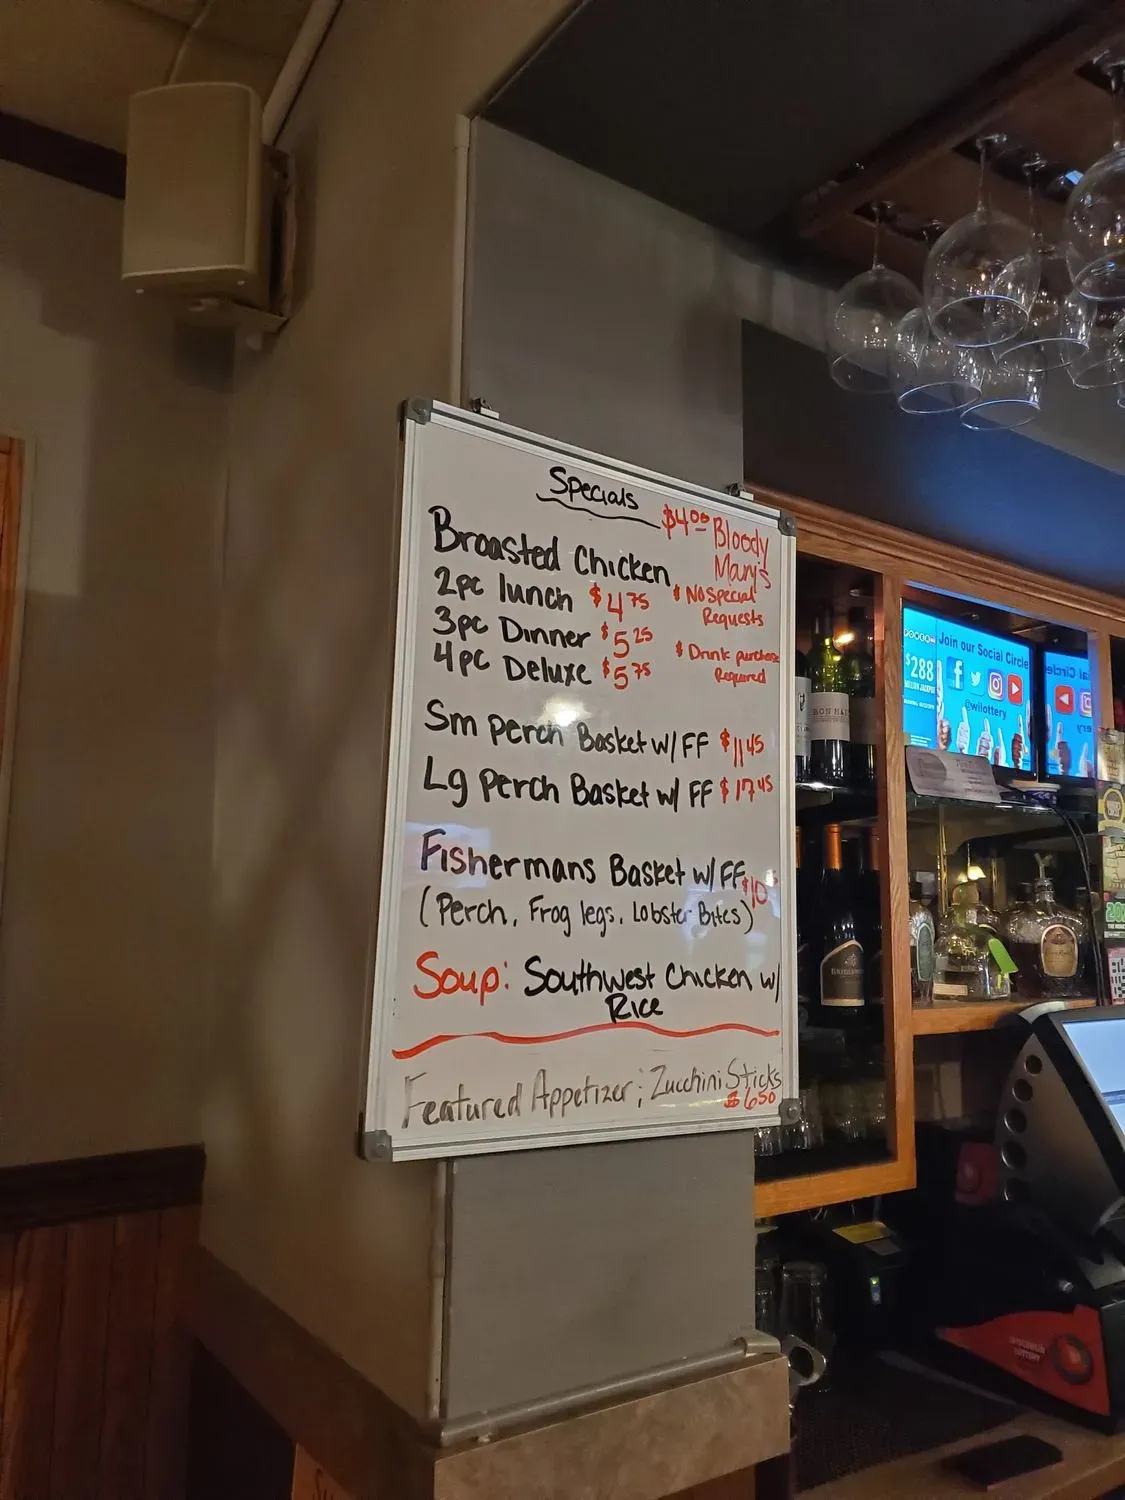 Specials
$4.00 Bloody
Marys
Broasted Chicken
2pc lunch $4.75
$ No Special
Requests
3pc Dinner $5.25
$ Drink purchase
Required
4pc Deluxe $5.75
Sm Perch Basket w/ FF $11.45
Lg Perch Basket w/ FF $17.45
Fishermans Basket w/ FF $10
(Perch, Frog legs, Lobster Bites)
Soup: Southwest Chicken w/
Rice
Featured Appetizer; Zucchini Sticks
$6.50
POWER
Join our Social Circle
$288
MILLION JACKPOT
@wilottery